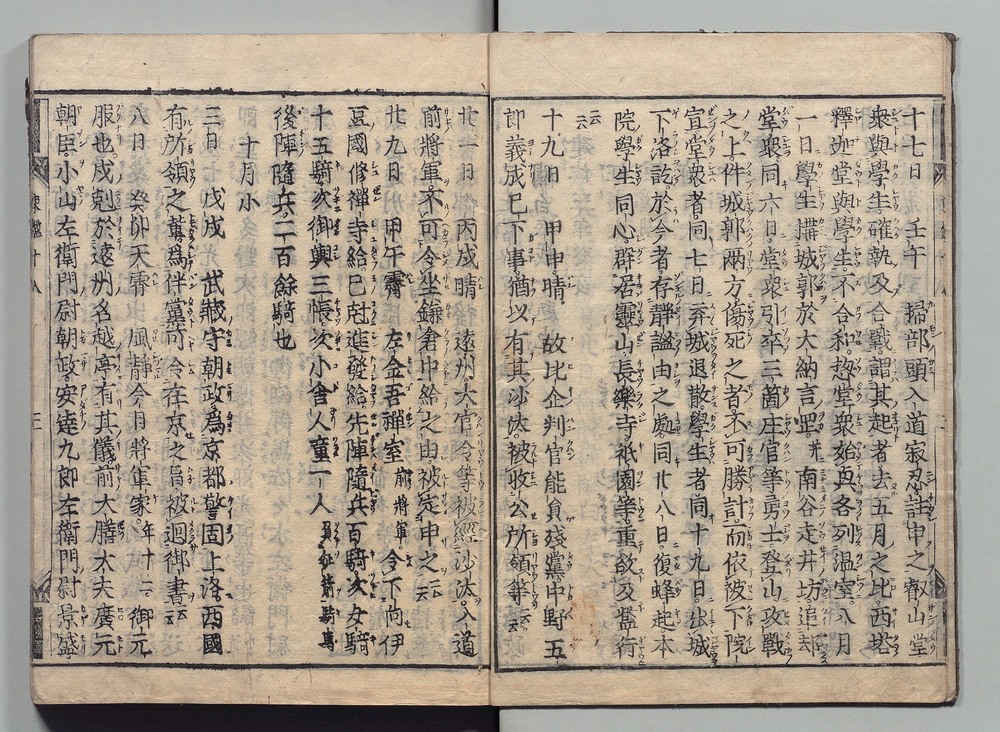 十七日 壬午 掃部頭入道寂忍註申之叡山堂
衆與學生確執及合戰謂其起者去五月之比西塔
釋迦堂與學生不合和惣堂衆始與各列温室八月
一日學生搆城郭於大納言罡尤南谷走井坊追却
堂衆同六日堂衆引卒三箇庄官等勇士登山攻戰
之上件城郭兩方傷死之者不可勝計而依被下院
宣堂衆者同七日弃城退散學生者同十九日出城
下洛訖於今者存靜謐由之處同廿八日復蜂起本
院學生同心群居靈山長樂寺祇園等重欲及濫行
云云
十九日 甲申晴 故比企判官能員殘黨中野五
郎義成已下事猶以有其沙汰被收公所領等云云
廿一日 丙戌晴 遠州大官令等被經沙汰入道
前將軍不可令坐鎌倉中給之由被定申之云云
廿九日 甲午霽 左金吾禪室前將軍令下向伊
豆國修禪寺給巳尅進發給先陣隨兵百騎次女騎
十五騎次御輿三帳次小舎人童一人負征箭騎馬
後陣隨兵二百餘騎也
十月小
三日 戊戌 武藏守朝政爲京都警固上洛西國
有所領之輩爲伴黨可令在京之旨被廻御書云云
八日 癸卯天霽 風靜今日將軍家年十二御元
服也戌剋於遠州名越亭有其儀前大膳大夫廣元
朝臣小山左衛門尉朝政安達九郎左衛門尉景盛